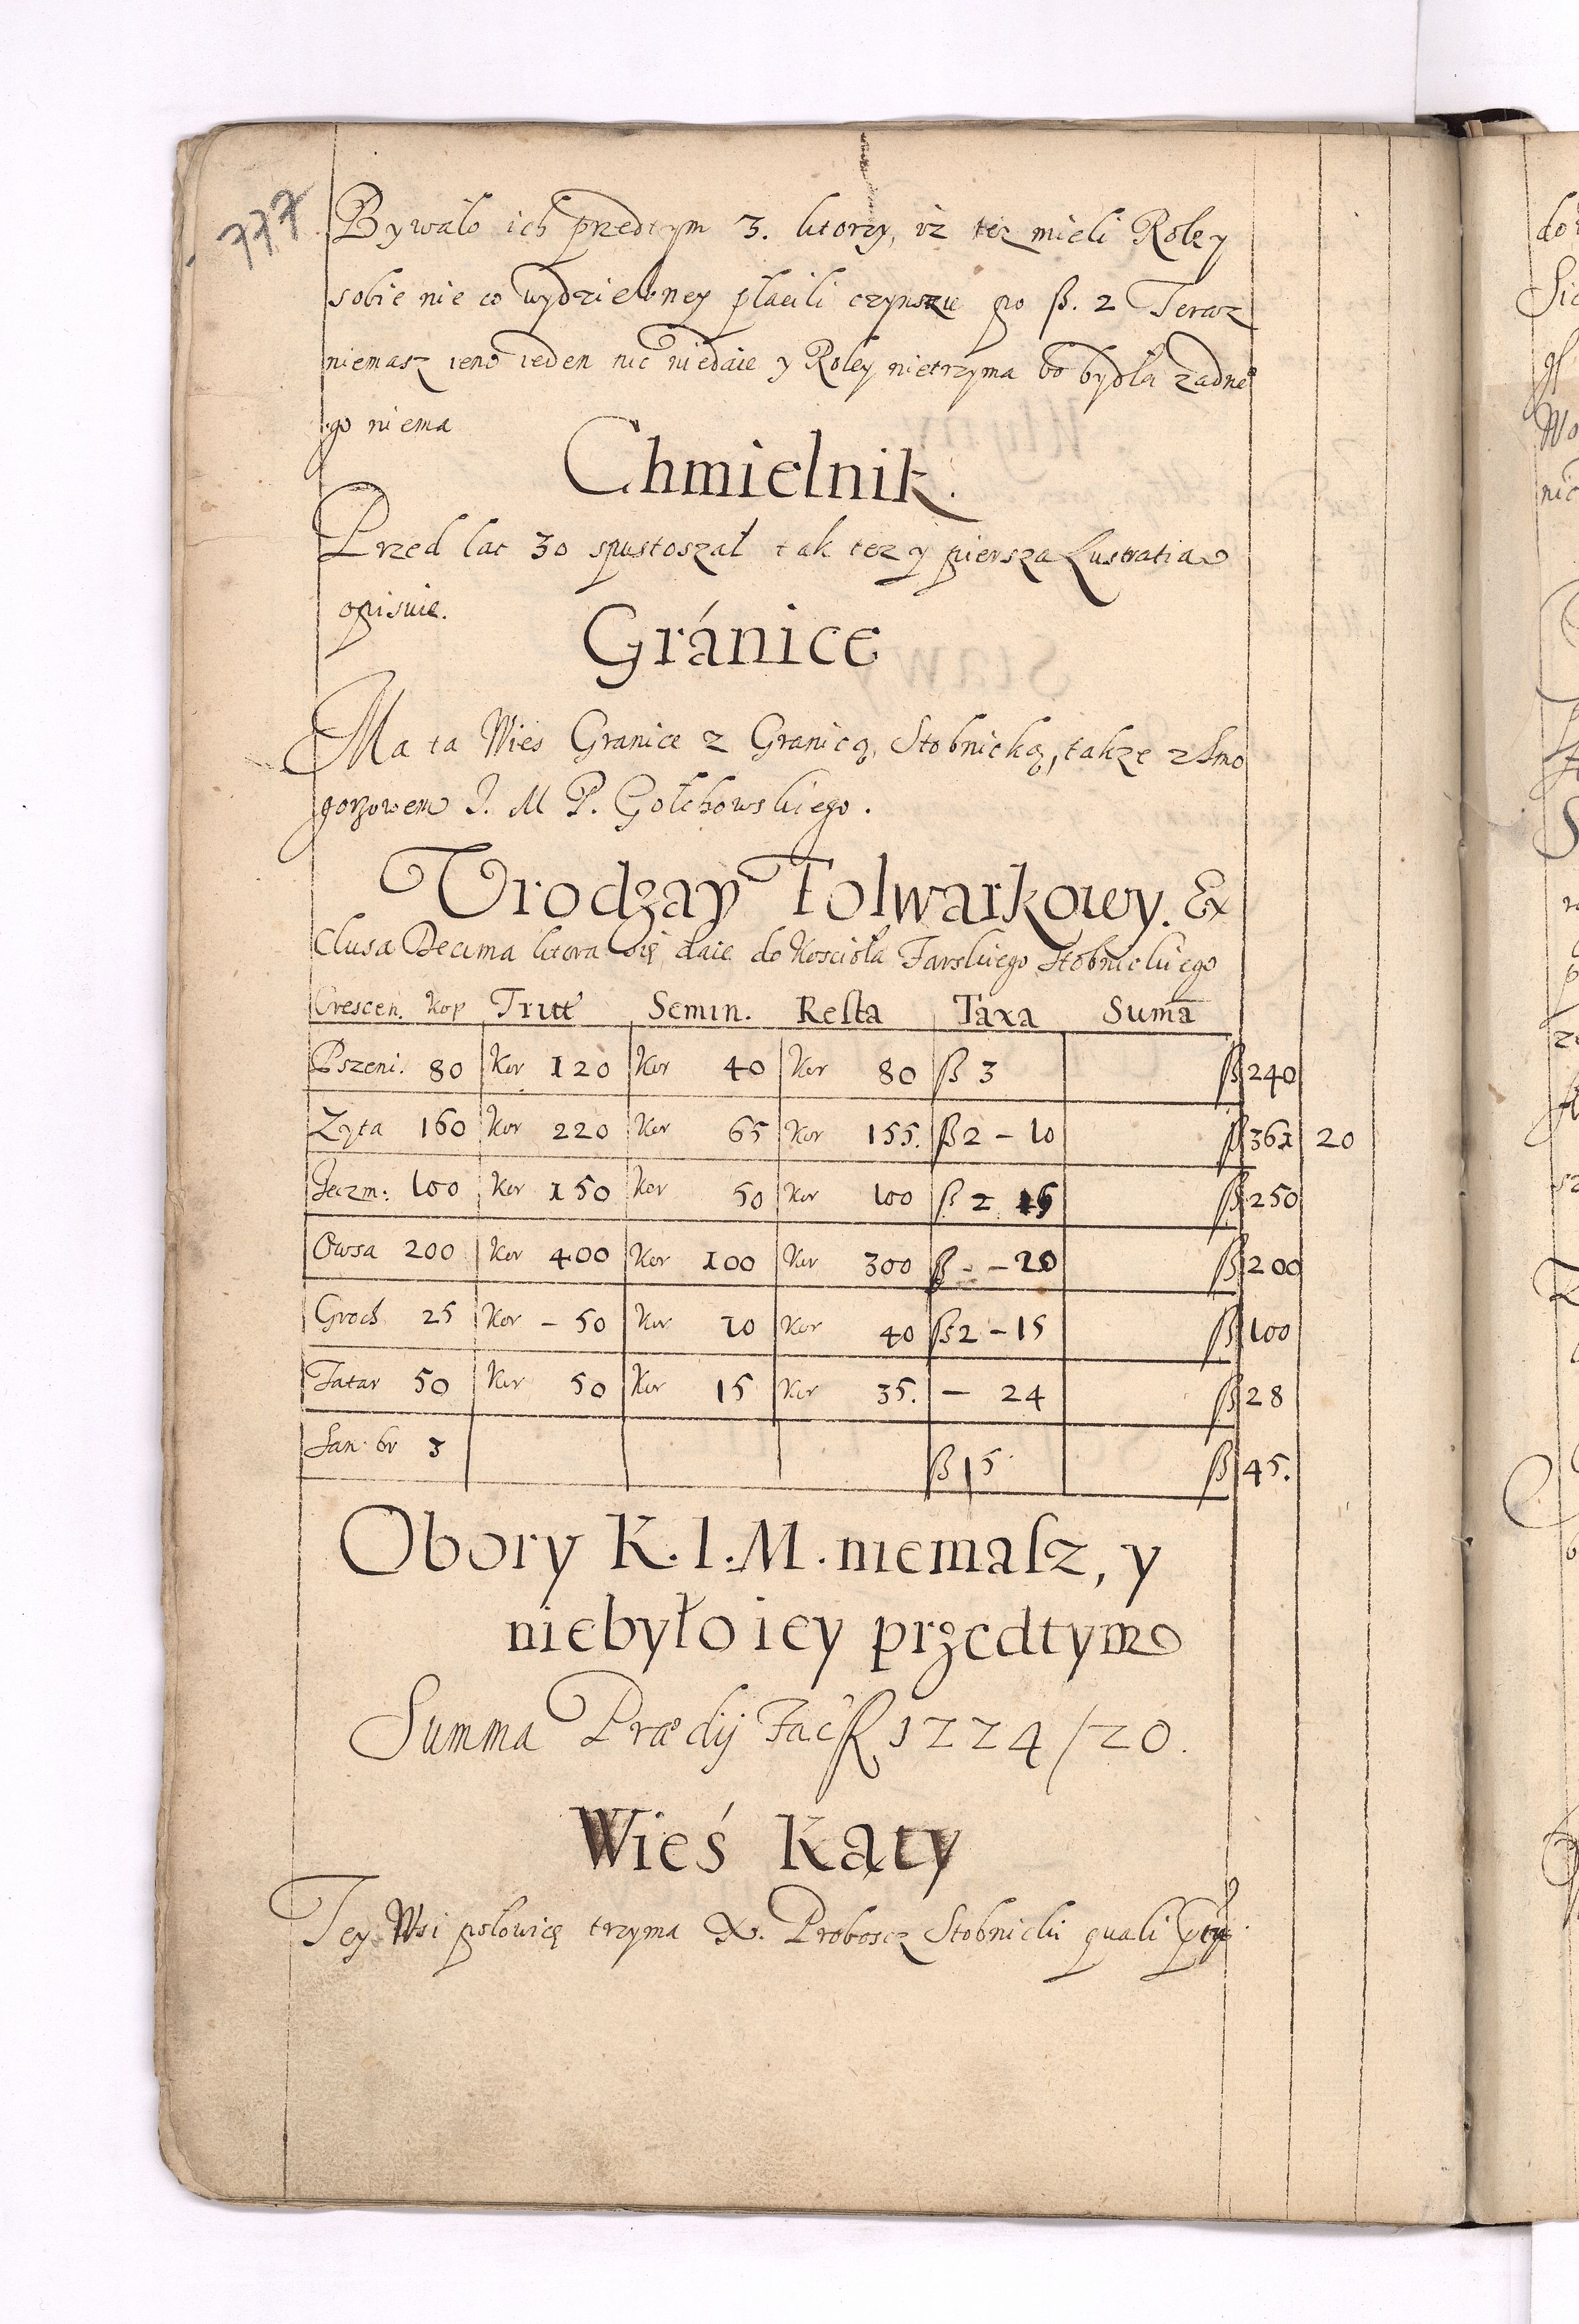 777
Bywało ich przedtym 3. ktorzy, iz tez mieli Roley
sobie nie co wydzieloney płacili czynszu po ß. 2 Teraz
niemasz ieno ieden nic niedaie y Roley nietrzyma bo bydła zadne
go niema
Chmielnik.
Przed lat 30 spustoszał tak tez y piersza Lustratia
opisuie.
Gránice
Ma ta Wies Granice z Granicą, Stobnicką, takze z Smo
gorzowem J. M P. Gołchowskiego.
Vrodzay Folwarkowy. Ex
Clusa Decima ktora się daie do Koscioła Farskiego Stobnickiego
Crescen. Kop Tritt Semin. Resta Taxa Suma
Pszeni. 80 Kor 120 Kor 40 Kor 80 ß 3 ß 240
Zyta 160 Kor 220 Kor 65 Kor 155. ß 2 – 10 ß 361 20
Jeczm: 100 Kor 150 Kor 50 Kor 100 ß 2 15 ß 250
Owsa 200 Kor 400 Kor 100 Kor 300 ß - – 20 ß 200
Groch 25 Kor – 50 Kor 10 Kor 40 ß 2 – 15 ß 100
Tatar 50 Kor 50 Kor 15 Kor 35. – 24 ß 28
Sian. br 3 ß 15 ß 45.
Obory K. I. M. niemasz, y
niebyło iey przedtym
Summa Prædij Fac ß 1224/20.
Wieś Kąty
Tey Wsi połowicę trzyma X. Proboscz Stobnicki quali